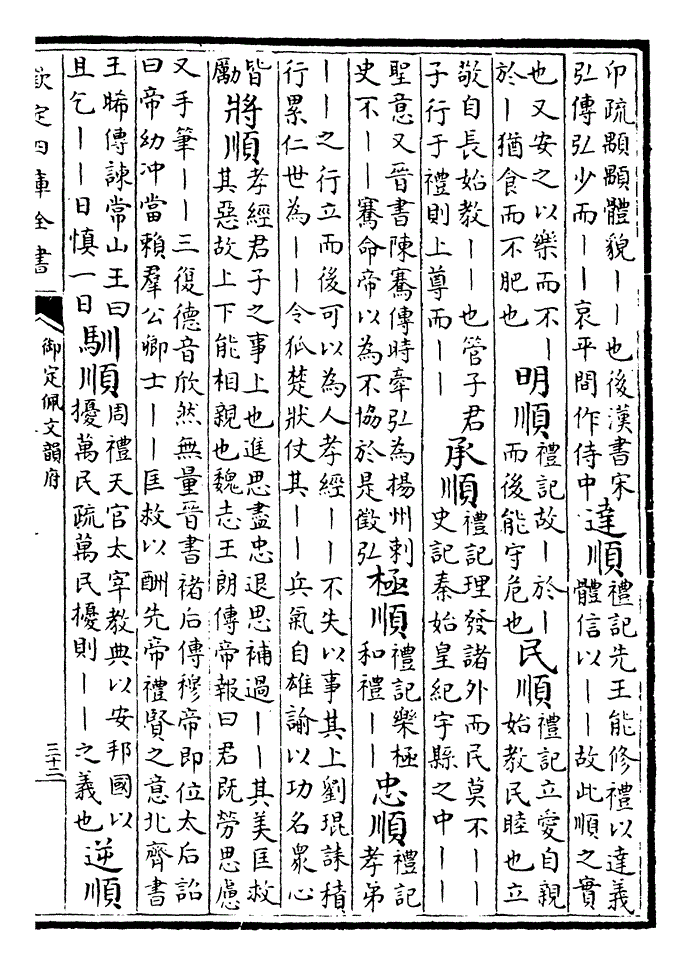 卬疏顒顒體貌｜｜也後漢書宋弘傳弘少而｜｜哀平間作侍中達順禮記先王能修禮以達義體信以｜｜故此順之實
也又安之以樂而不｜於｜猶食而不肥也明順禮記故｜於｜而後能守危也民順禮記立愛自親始教民睦也立
敬自長始教｜｜也管子君子行于禮則上尊而｜｜承順禮記理發諸外而民莫不｜｜史記秦始皇紀宇縣之中｜｜
聖意又晉書陳騫傳時牽弘為揚州刺史不｜｜騫命帝以為不協於是徵弘極順禮記樂極和禮｜｜忠順禮記孝弟
｜｜之行立而後可以為人孝經｜｜不失以事其上劉琨誄積行累仁世為｜｜令狐楚狀仗其｜｜兵氣自雄諭以功名衆心
皆勵將順孝經君子之事上也進思盡忠退思補過｜｜其美匡救其惡故上下能相親也魏志王朗傳帝報曰君既勞思慮
又手筆｜｜三復德音欣然無量晉書褚后傳穆帝即位太后詔曰帝幼冲當賴羣公卿士｜｜匡救以酬先帝禮賢之意北齊書
王晞傳諫常山王曰且乞｜｜日慎一日馴順周禮天官太宰教典以安邦國以擾萬民疏萬民擾則｜｜之義也逆順
欽定四庫全書
御定佩文韻府
三十二